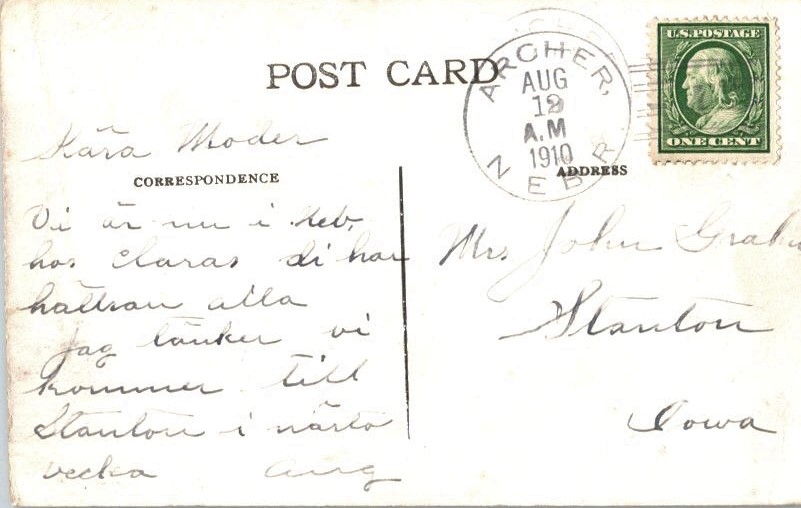 POST CARD
ARCHER,
AUG
12
A.M
1910
NEBR
U.S. POSTAGE
ONE CENT
Kära Moder
CORRESPONDENCE
ADDRESS
Vi är nu i Neb,
hos Claras di har
hälsan alla
Jag tänker vi
kommer till
Stanton i närsta
vecka Aug
Mrs John
Stanton
Iowa